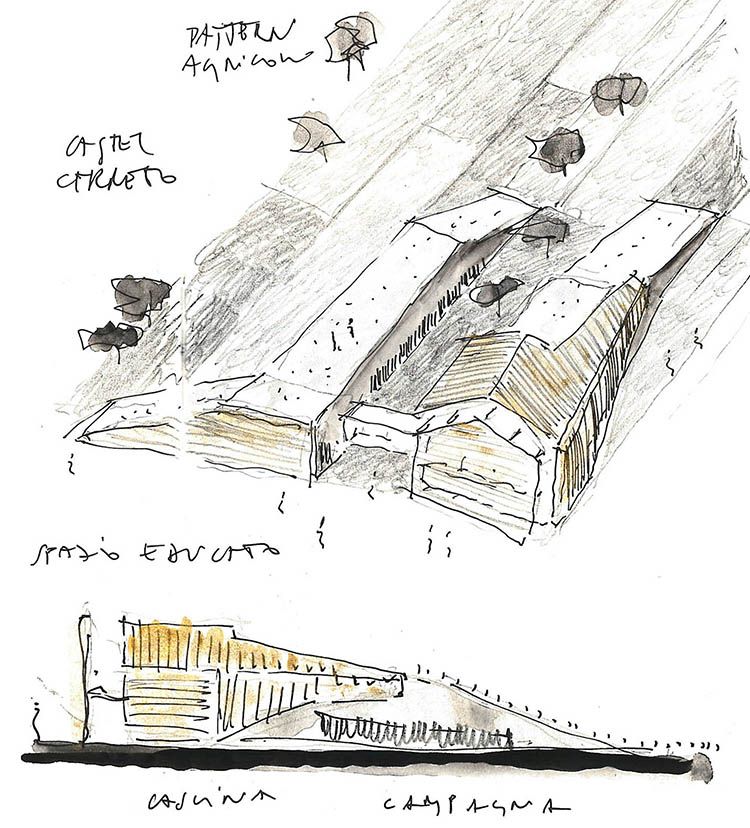 PATTERN
AGRICOLO
CASTEL
CERRETO
SPAZIO EDUCATO
CASCINA
CAMPAGNA